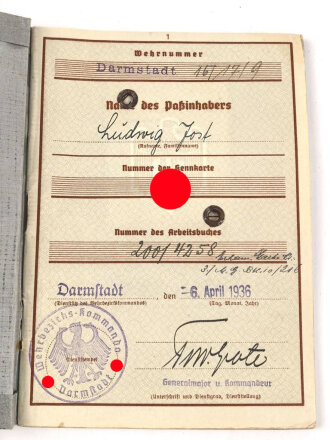 1
Wehrnummer
Darmstadt 16/17/9
Name des Paßinhabers
Ludwig Jost
(Rufname, Familienname)
Nummer der Kennkarte
Nummer des Arbeitsbuches
200/4258
Darmstadt, den -6. April 1936
(Dienstsitz des Wehrbezirkskommandos) (Tag, Monat, Jahr)
Wehrbezirks-Kommando
Dienstsiegel
Darmstadt
Generalmajor u. Kommandeur
(Unterschrift und Dienstgrad, Dienststellung)